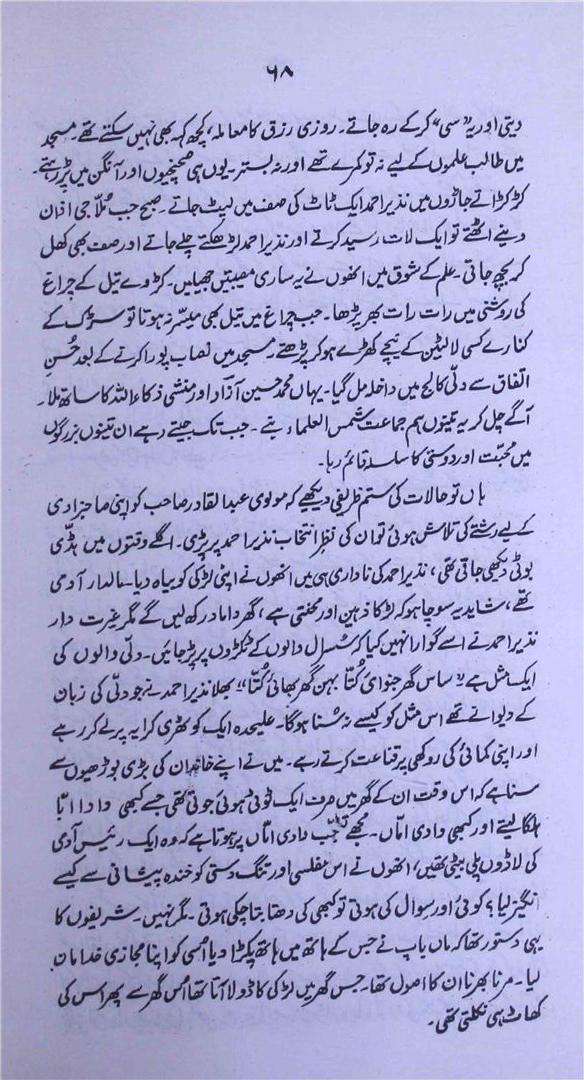 ۶۸
دیتی اور یہ ”سی“ کرکے رہ جاتے۔ روزی رزق کا معاملہ، کچھ کہہ بھی نہیں سکتے تھے۔ مسجد
میں طالب علموں کے لیے نہ تو کمرے تھے اور نہ بستر۔ یوں ہی صحنچیوں اور آنگن میں پڑ رہتے۔
کڑکڑاتے جاڑوں میں نذیر احمد ایک ٹاٹ کی صف میں لپٹ جاتے۔ صبح جب مُلّا جی اذان
دینے اٹھتے تو ایک لات رسید کرتے اور نذیر احمد لڑھکتے چلے جاتے اور صف بھی کھل
کر بچھ جاتی۔ علم کے شوق میں انھوں نے یہ ساری مصیبتیں جھیلیں۔ کڑوے تیل کے چراغ
کی روشنی میں رات رات بھر پڑھا۔ جب چراغ میں تیل بھی میسّر نہ ہوتا تو سڑک کے
کنارے کسی لالٹین کے نیچے کھڑے ہو کر پڑھتے۔ مسجد میں نصاب پورا کرنے کے بعد حُسنِ
اتفاق سے دلّی کالج میں داخلہ مل گیا۔ یہاں محمد حسین آزاد اور منشی ذکاءاللہ کا ساتھ ملا۔
آگے چل کر یہ تینوں ہم جماعت شمس العلماء بنے۔ جب تک جیتے رہے ان تینوں بزرگوں
میں محبّت اور دوستی کا سلسلہ قائم رہا۔
ہاں تو حالات کی ستم ظریفی دیکھیے کہ مولوی عبدالقادر صاحب کو اپنی صاحبزادی
کے لیے رشتے کی تلاش ہوئی تو ان کی نظرِ انتخاب نذیر احمد پر پڑی۔ اگلے وقتوں میں ہڈّی
بوٹی دیکھی جاتی تھی، نذیر احمد کی ناداری ہی میں انھوں نے اپنی لڑکی کو بیاہ دیا۔ مالدار آدمی
تھے، شاید یہ سوچا ہو کہ لڑکا ذہین اور محنتی ہے، گھر داماد رکھ لیں گے مگر غیرت دار
نذیر احمد نے اسے گوارا نہیں کیا کہ سُسرال والوں کے ٹکڑوں پر پڑ جائیں۔ دلّی والوں کی
ایک مثل ہے ”ساس گھر جنوائی کُتّا بہن گھر بھائی کُتّا“ بھلا نذیر احمد نے جو دلّی کی زبان
کے دیوانے تھے اس مثل کو کیسے نہ سُنا ہوگا۔ علیحدہ ایک کوٹھری کرایہ پر لے کر رہے
اور اپنی کمائی کی روکھی پر قناعت کرتے رہے۔ میں نے اپنے خاندان کی بڑی بوڑھیوں سے
سنا ہے کہ اس وقت ان کے گھر میں صرف ایک ٹوٹی ہوئی جوتی تھی جسے کبھی دادا ابّا
ہلگا لیتے اور کبھی دادی امّاں۔ مجھے تعجّب دادی امّاں پر ہوتا ہے کہ وہ ایک رئیس آدمی
کی لاڈوں پلی بیٹی تھیں، انھوں نے اس مفلسی اور تنگ دستی کو خندہ پیشانی سے کیسے
انگیز لیا؟ کوئی اور سوال کی ہوتی تو کبھی کی دھتا بتا چکی ہوتی۔ مگر نہیں۔ شریفوں کا
یہی دستور تھا کہ ماں باپ نے جس کے ہاتھ میں ہاتھ پکڑا دیا اُسی کو اپنا مجازی خدا مان
لیا۔ مرنا بھرنا ان کا اصول تھا۔ جس گھر میں لڑکی کا ڈولا آتا تھا اُس گھر سے پھر اس کی
کھاٹ ہی نکلتی تھی۔